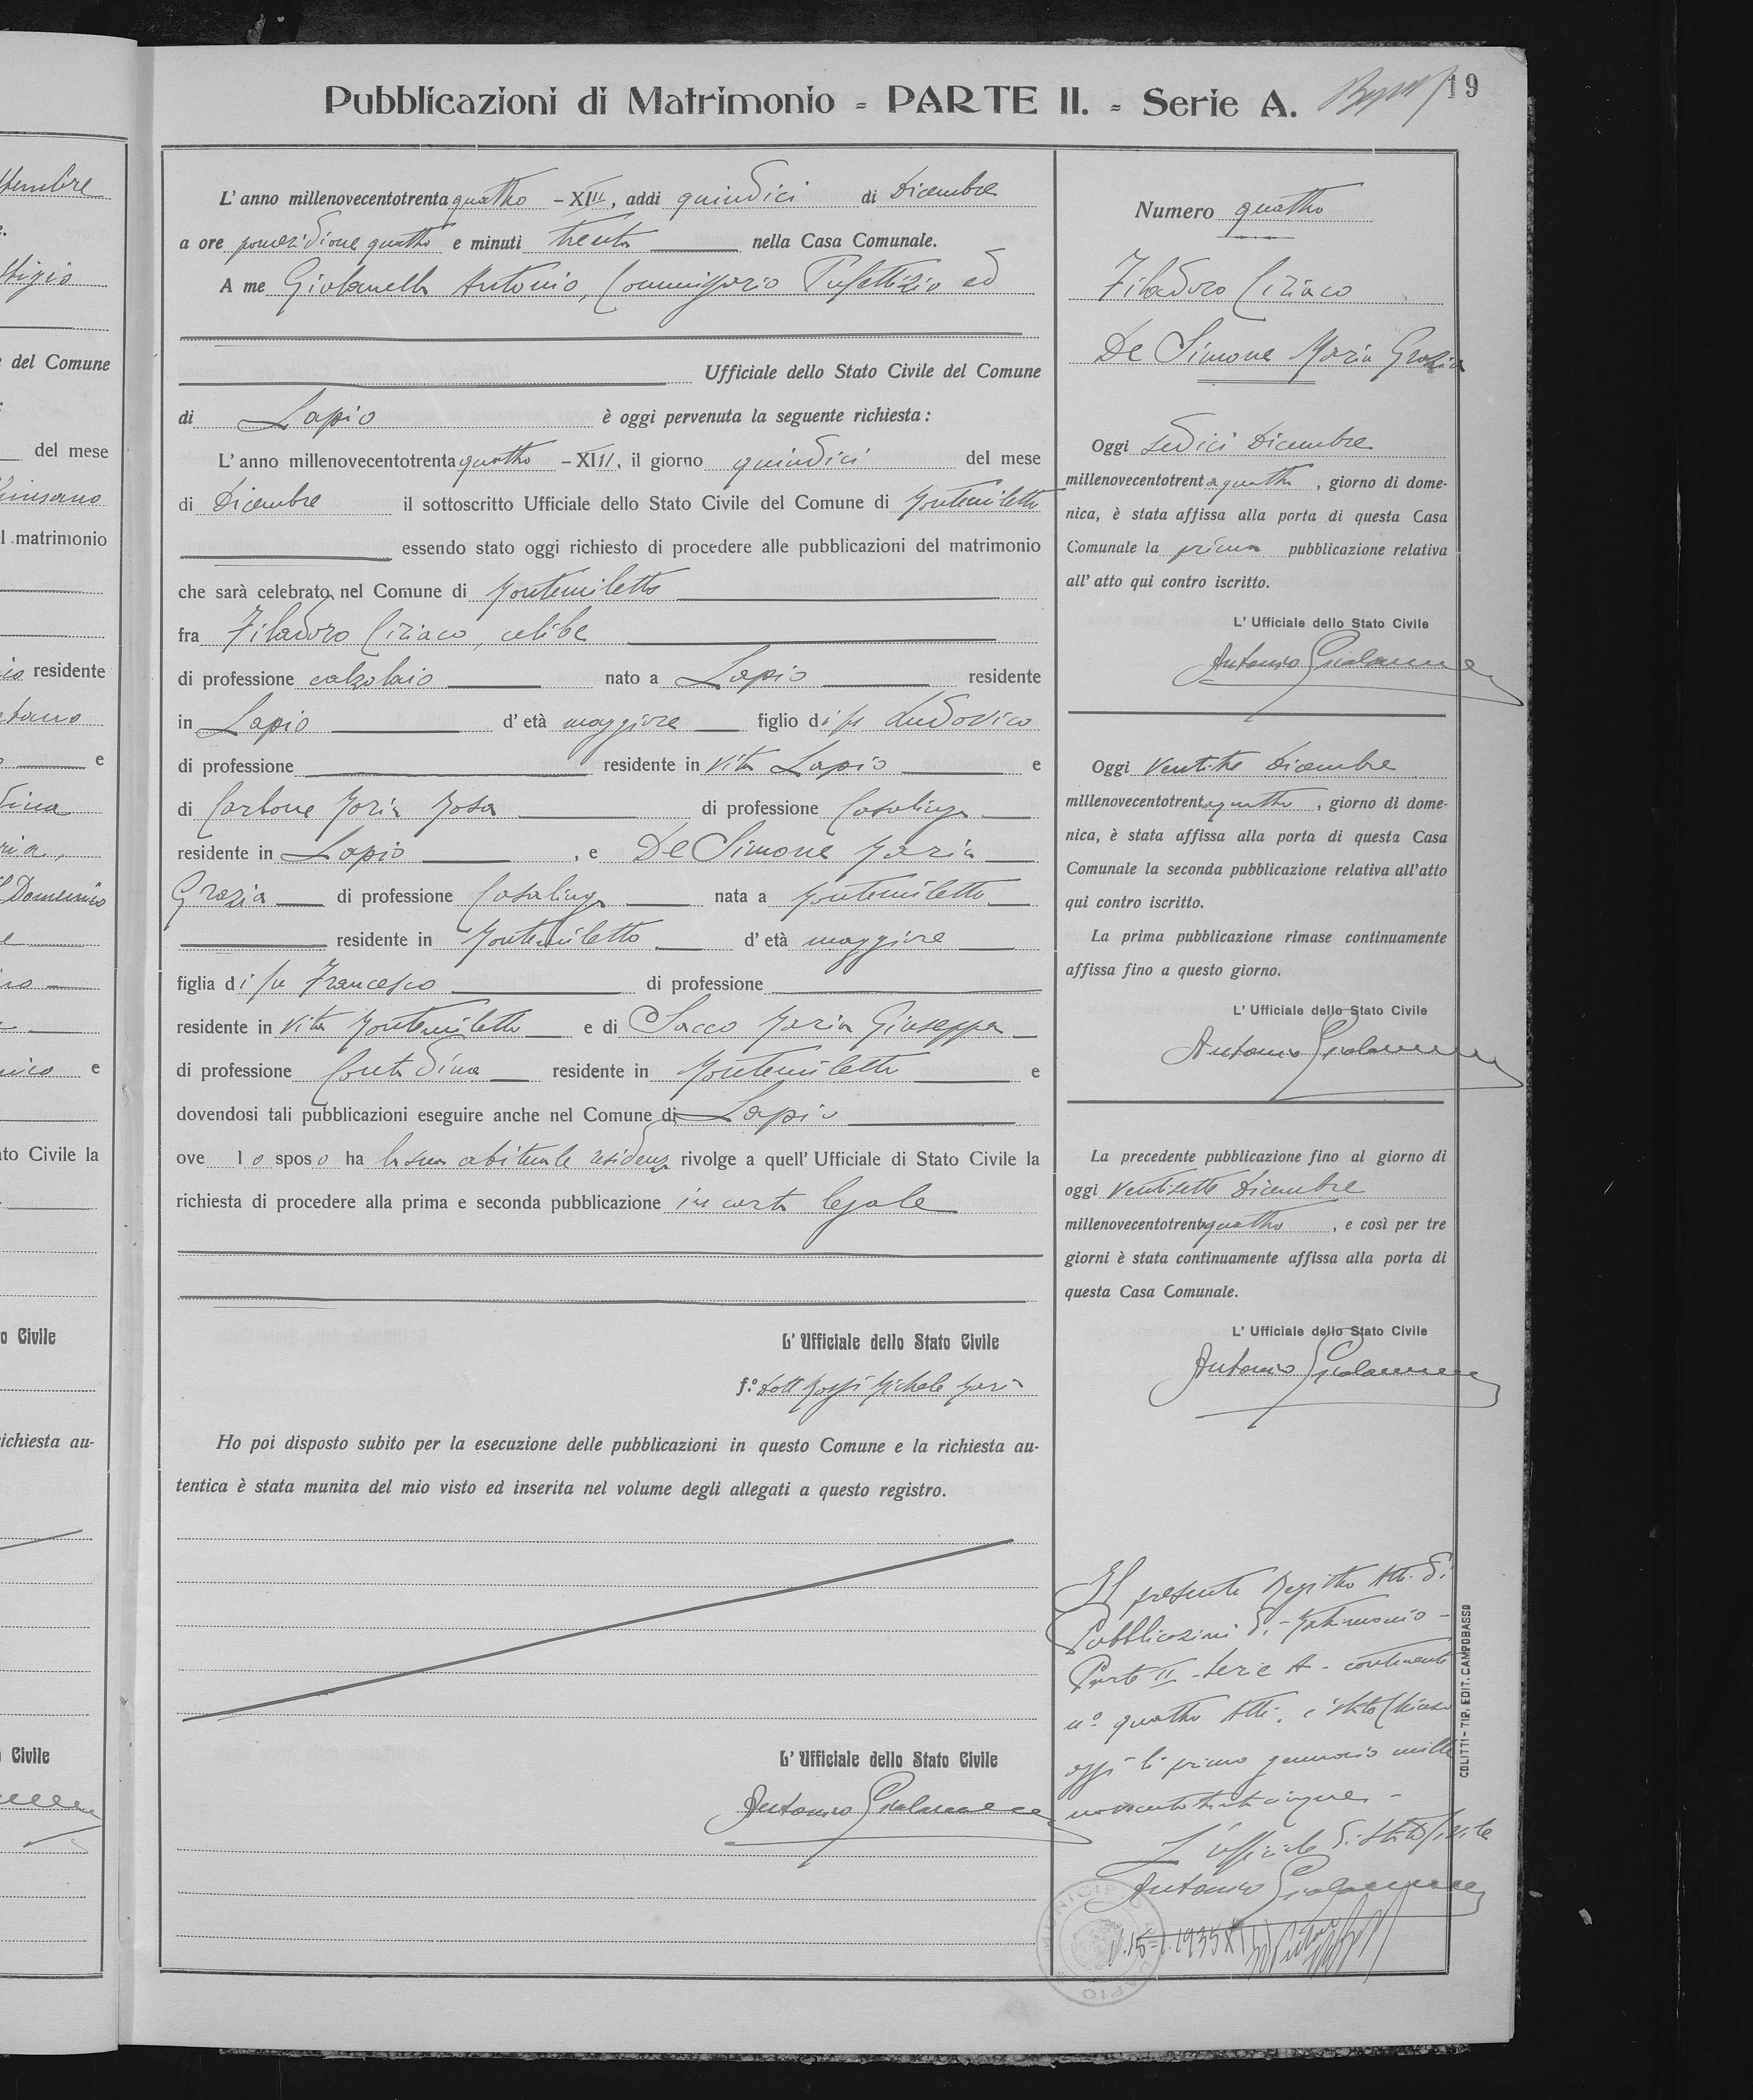 Pubblicazioni di Matrimonio - PARTE II. - Serie A.
19
L' anno millenovecentotrentaquattro - XIII, addì quindici di Dicembre
a ore pomeridione quattro e minuti trenta nella Casa Comunale.
A me Giolanella Antonio, Commissario Prefettizio ed
Ufficiale dello Stato Civile del Comune
di Lapio è oggi pervenuta la seguente richiesta :
L' anno millenovecentotrentaquattro - XIII, il giorno quindici del mese
di Dicembre il sottoscritto Ufficiale dello Stato Civile del Comune di Montemiletto
essendo stato oggi richiesto di procedere alle pubblicazioni del matrimonio
che sarà celebrato nel Comune di Montemiletto
fra Filadoro Ciriaco, celibe
di professione calzolaio nato a Lapio residente
in Lapio d' età maggiore figlio di fu Ludovico
di professione residente in vita Lapio e
di Carbone Maria Rosa di professione Casalinga
residente in Lapio , e De Simone Maria
Grazia di professione Casalinga nata a Montemiletto
residente in Montemiletto d' età maggiore
figlia di fu Francesco di professione
residente in vita Montemiletto e di Sacco Maria Giuseppa
di professione Contadina residente in Montemiletto e
dovendosi tali pubblicazioni eseguire anche nel Comune di Lapio
ove lo sposo ha la sua abituale residenza rivolge a quell' Ufficiale di Stato Civile la
richiesta di procedere alla prima e seconda pubblicazione in carta legale
L' Ufficiale dello Stato Civile
f.º Dott Rossi Michele
Ho poi disposto subito per la esecuzione delle pubblicazioni in questo Comune e la richiesta au-
tentica è stata munita del mio visto ed inserita nel volume degli allegati a questo registro.
L' Ufficiale dello Stato Civile
Antonio Giolanella
Numero quattro
Filadoro Ciriaco
De Simone Maria Grazia
Oggi sedici Dicembre
millenovecentotrentaquattro , giorno di dome-
nica, è stata affissa alla porta di questa Casa
Comunale la prima pubblicazione relativa
all' atto qui contro iscritto.
L' Ufficiale dello Stato Civile
Antonio Giolanella
Oggi ventitre Dicembre
millenovecentotrentaquattro , giorno di dome-
nica, è stata affissa alla porta di questa Casa
Comunale la seconda pubblicazione relativa all'atto
qui contro iscritto.
La prima pubblicazione rimase continuamente
affissa fino a questo giorno.
L' Ufficiale dello Stato Civile
Antonio Giolanella
La precedente pubblicazione fino al giorno di
oggi ventisette Dicembre
millenovecentotrentaquattro , e così per tre
giorni è stata continuamente affissa alla porta di
questa Casa Comunale.
L' Ufficiale dello Stato Civile
Antonio Giolanella
Il presente Registro Atti di
Pubblicazioni di Matrimonio -
Parte II - Serie A - contenente
nº quattro Atti, è stato chiuso
oggi li primo gennaio mille
novecentotrentacinque -
L'ufficiale di Stato Civile
Antonio Giolanella
V. 15-1-1935 XIII
MUNICIPIO DI LAPIO
COLITTI - TIP. EDIT. CAMPOBASSO
ttembre
del Comune
del mese
l matrimonio
residente
e
Domenico
e
to Civile la
o Civile
ichiesta au-
Civile